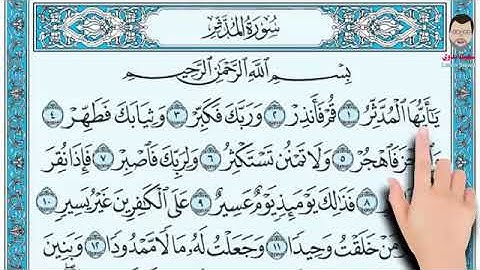 سُورَةُ الْمُدَّثِّرِ
بِسْمِ اللَّهِ الرَّحْمَٰنِ الرَّحِيمِ
يَٰٓأَيُّهَا الْمُدَّثِّرُ ١ قُمْ فَأَنذِرْ ٢ وَرَبَّكَ فَكَبِّرْ ٣ وَثِيَابَكَ فَطَهِّرْ ٤
فَاهْجُرْ ٥ وَلَا تَمْنُن تَسْتَكْثِرُ ٦ وَلِرَبِّكَ فَاصْبِرْ ٧ فَإِذَا نُقِرَ
٨ فَذَٰلِكَ يَوْمَئِذٍ يَوْمٌ عَسِيرٌ ٩ عَلَى الْكَٰفِرِينَ غَيْرُ يَسِيرٍ ١٠
وَمَنْ خَلَقْتُ وَحِيدًا ١١ وَجَعَلْتُ لَهُۥ مَالًا مَّمْدُودًا ١٢ وَبَنِينَ